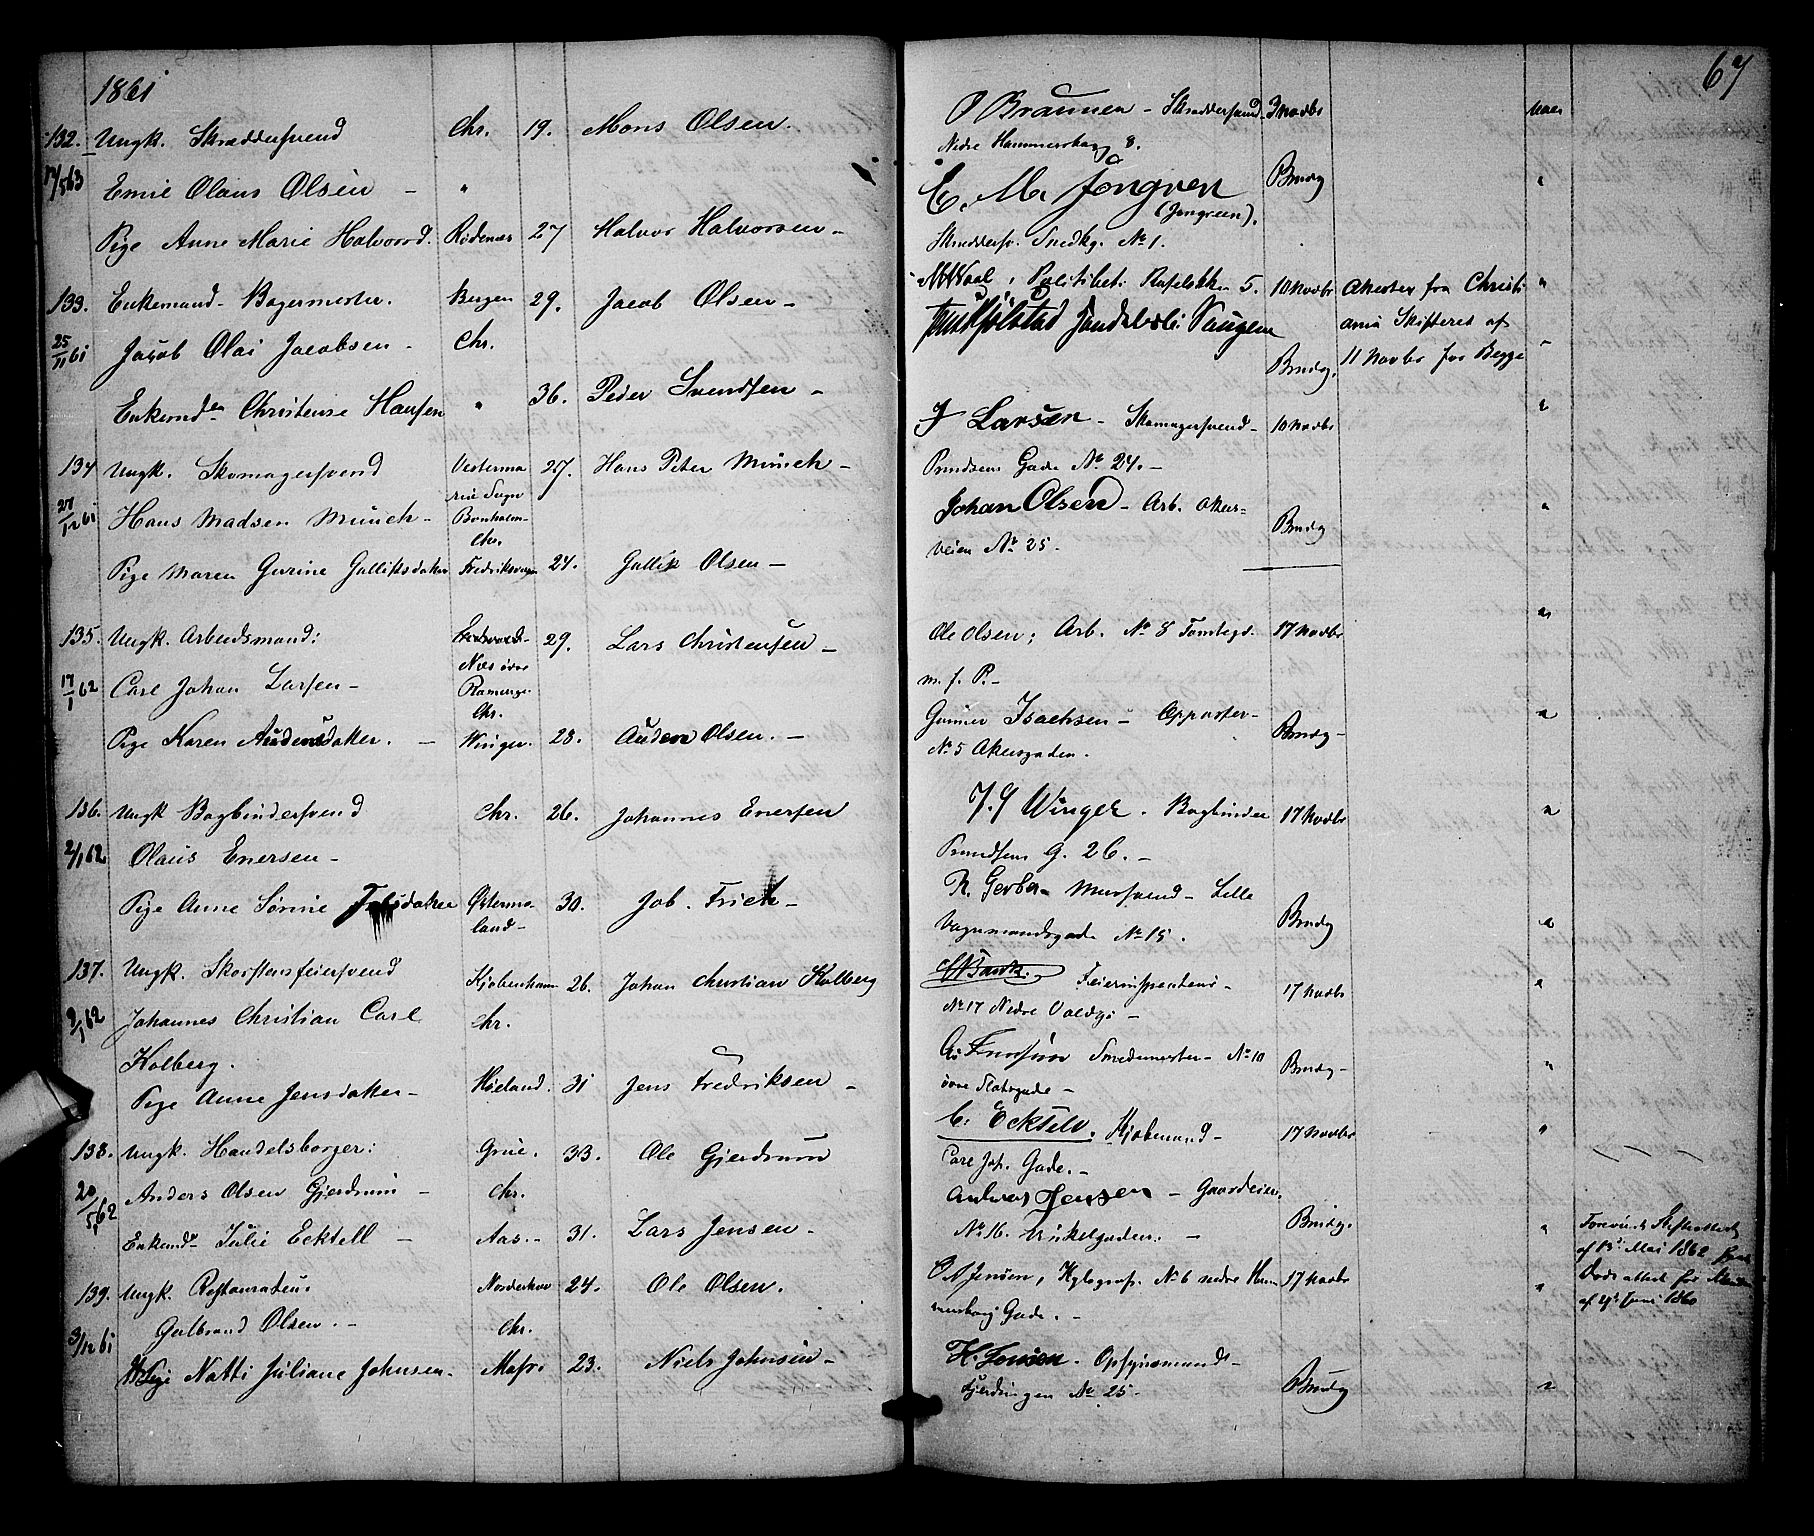 1861
67
132. Ungk. Skræddersvend Chr. 19. Mons Olsen.
17/5 63 Emil Olaus Olsen - "
Pige Anne Marie Halvorsd. Rødenæs 27 Halvor Halvorsen -
133. Enkemand Bagermester. Bergen 29. Jacob Olsen -
25/11 61 Jacob Olai Jacobsen - Chr.
Enkemden Christense Hansen " 36. Peder Svendsen -
134 Ungk. Skomagersvend Vesterma 27. Hans Peter Münch -
rie Sogn
27/12 61 Hans Madsen Münch - Bornholm-
Chr.
Pige Maren Gurine Gulliksdatter 24. Gullik Olsen -
135. Ungk. Arbeidsmand: 29. Lars Christensen -
Næs
17/1 62 Carl Johan Larsen -
Chr.
Pige Karen Audensdatter. - Winger. 28. Auden Olsen. -
136. Ungk Bogbindersvend Chr. 26. Johannes Enersen
2/1 62 Olaus Enersen -
Pige Anne Sørine Østerma- 30. Job. Frich -
land -
137. Ungk. Skorstensfeiersvend Kjøbenhavn 26. Johan Christian Holberg
9/1 62 Johannes Christian Carl Chr.
Holberg.
Pige Anne Jensdatter - Høland. 31 Jens Fredriksen -
138. Ungk. Handelsborger: Grue. 33. Ole Gjerdrum
20/5 62 Anders Olsen Gjerdrum - Chr.
Enkemde Julie Ecktell - Aas. - 31. Lars Jensen -
139. Ungk. Restauratør Norderhov 24. Ole Olsen.
Gulbrand Olsen. - Chr.
3/12 61 Pige Natti Juliane Johnsen. 23. Niels Johnsen -
O Braunen - Skræddersvend 3 Novbr
Nedre Hammersborg 8.
E. M. Jongren Brudg
(Jongreen).
Skræddersv. Smedbg. No 1.
Politibet. 5. 10 Novbr Attester fra Christi
ania Skifteret af
Brudg. 11 Novbr for Begge
J Larsen - Skomagersvend - 10 Novbr
Prindsens Gade No 24. -
Johan Olsen - Arb. Akers= Brudg
veien No 25.
Ole Olsen; Arb. No 8 Tomtegd. 17 Novbr
m. f. P. -
Gunner Isachsen - Brudg -
No 5 Akersgaden.
J. G Winger. Bogbinder 17 Novbr
Prindsens G. 26. -
R. Gerber - Mursvend - Lille Brudg
Vognmandsgade No 15.
17 Novbr
No 17 Nedre Voldg. -
Smedemester - No 10 Brudg -
øvre Slotsgade -
C. Ecktell. Kjøbmand - 17 Novbr
Carl Joh. Gade. -
Andreas Jensen - Gaardeier, Brudg.
No 16. Vinkelgaden. -
Forevist Skifteattest
af 13de Mai 1862
O A Jensen, Xylograf. No 6 nedre Ham 17 Novbr
mersborg Gade. -
af 4de Juni 1860
H. Jensen - Opsynsmand - Brudg
Fjerdingen No 25 -